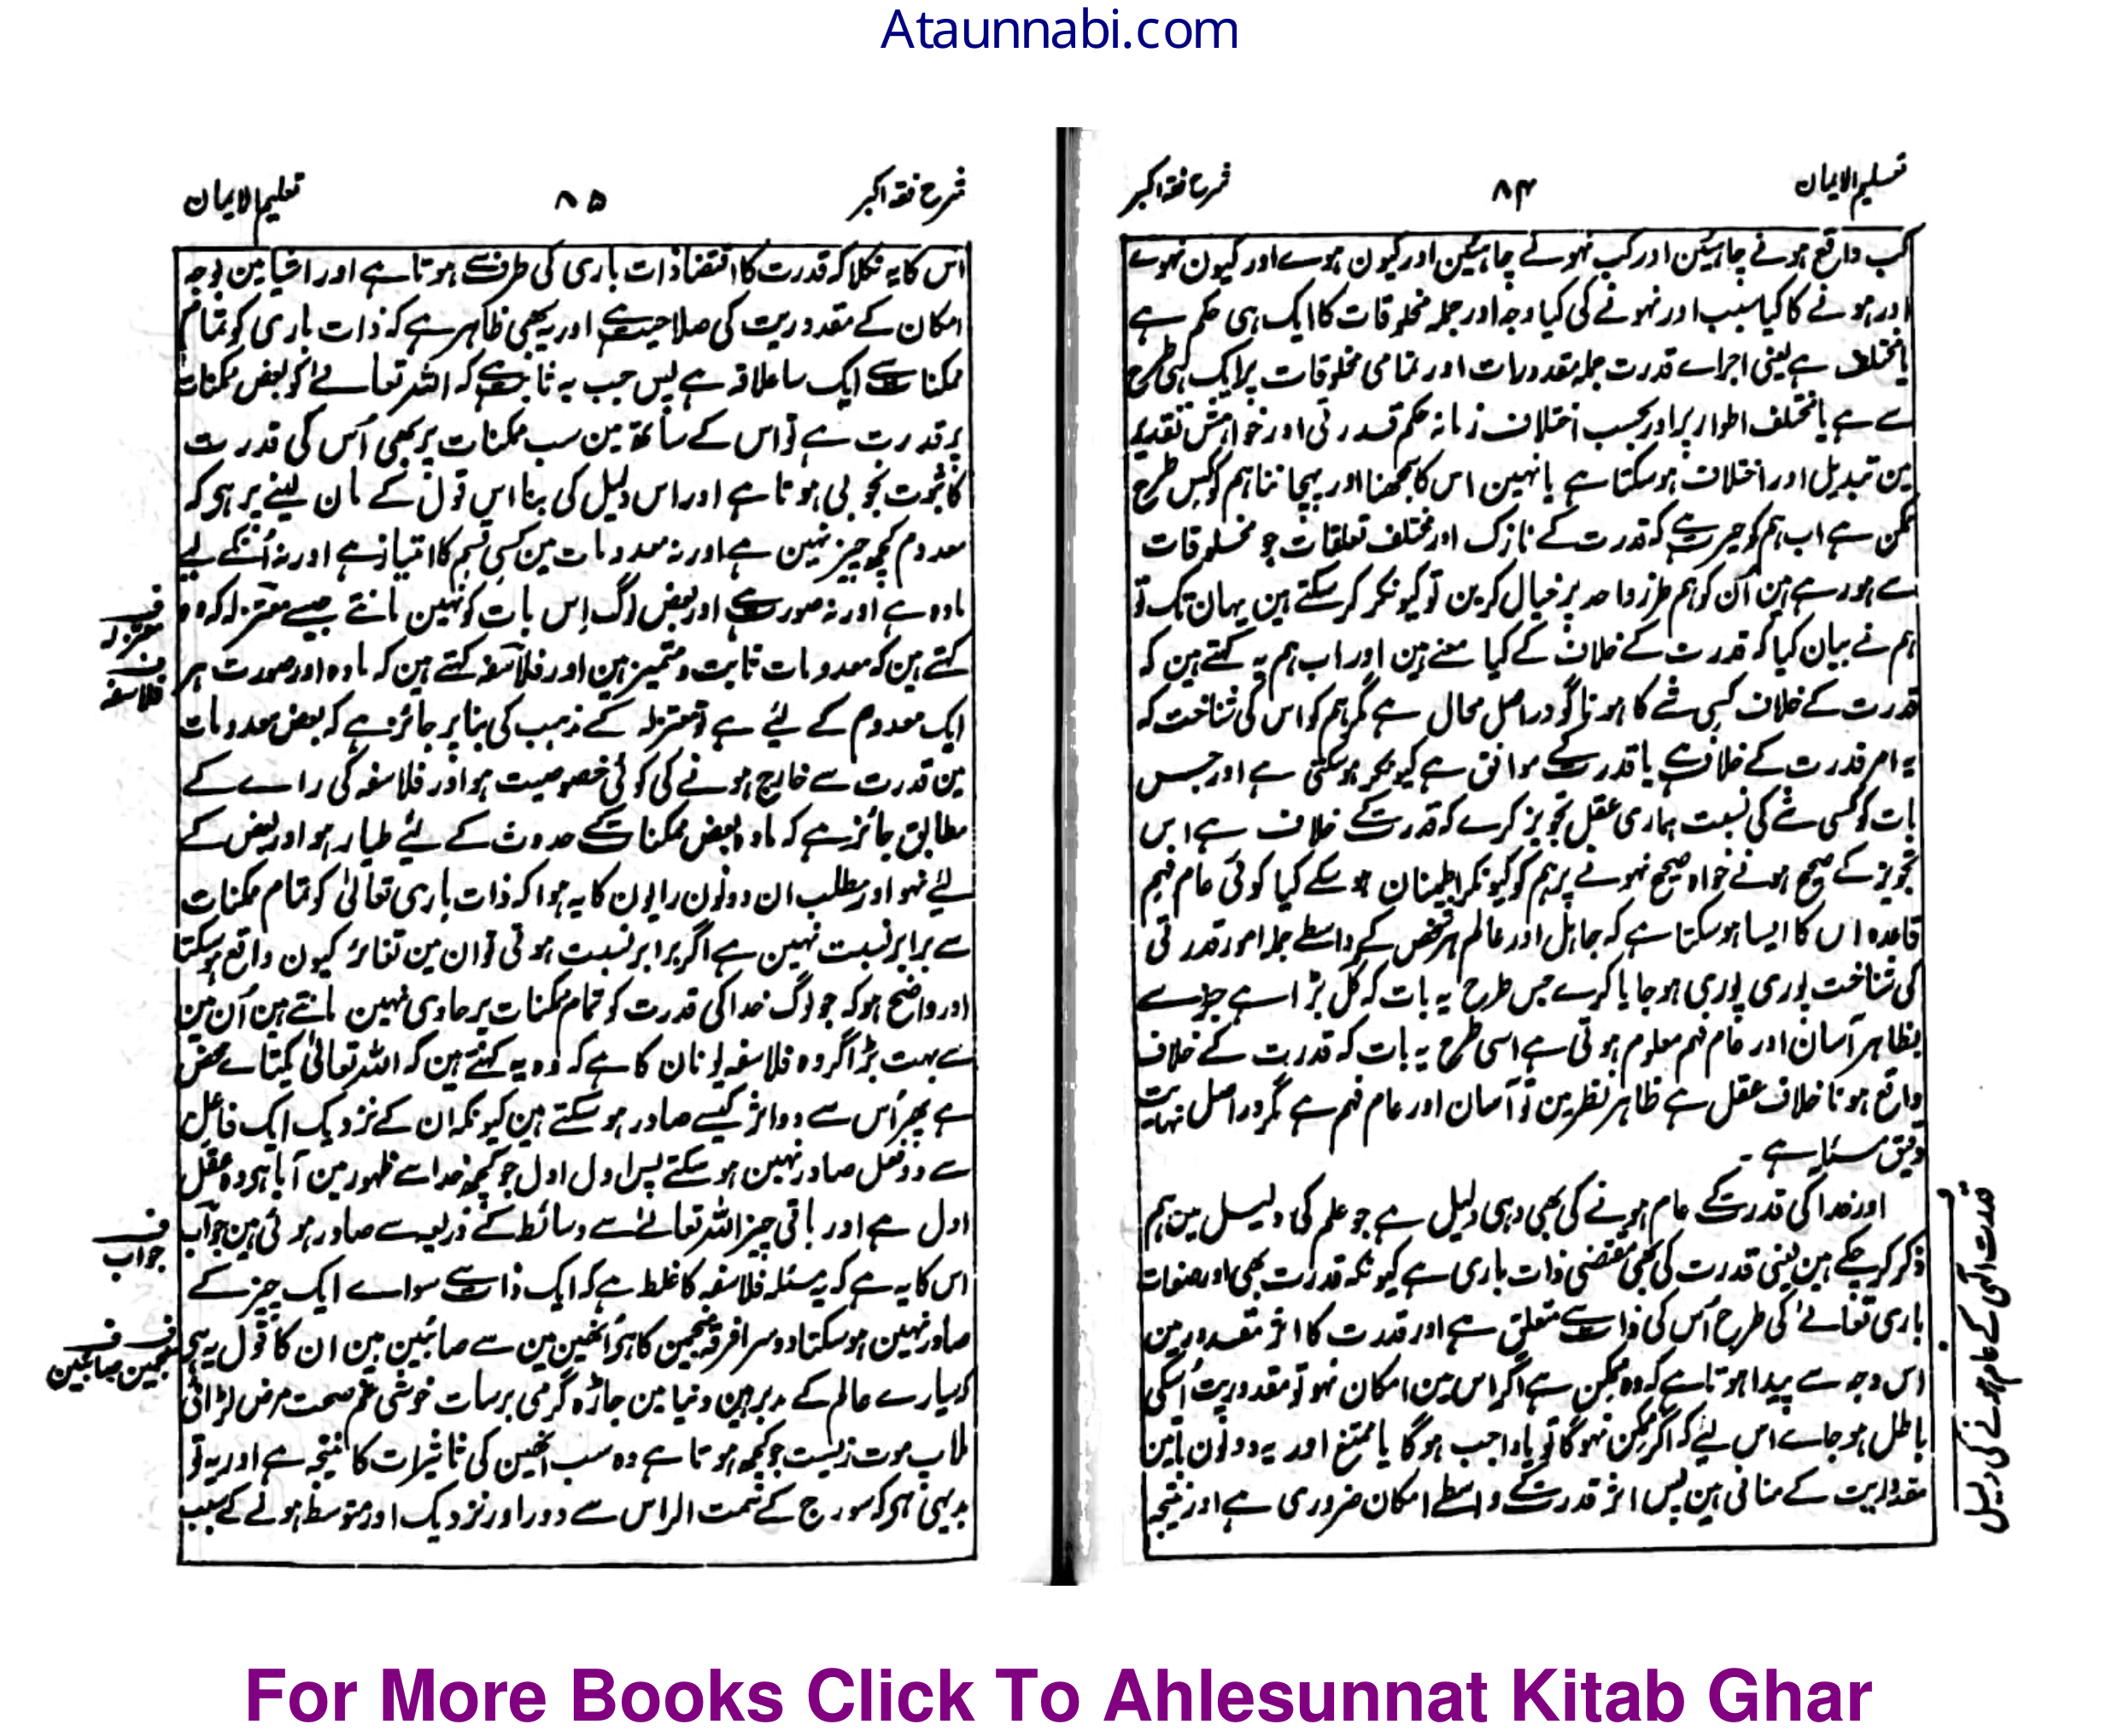 Ataunnabi.com
تعلیم الایمان
۸۴
شرح فقہ اکبر
کب واقع ہونے چاہئین اور کب نہونے چاہئین اور کیون ہوے اور کیون نہوے
اور ہونے کا کیا سبب اور نہونے کی کیا وجہ اور جملہ مخلوقات کا ایک ہی حکم ہے
یا مختلف ہے یعنی اجراے قدرت جملہ مقدورات اور تمامی مخلوقات پر ایک ہی طرح
سے ہے یا مختلف اطوار پر اور بحسب اختلاف زمانہ حکم قدرتی اور خواہش تقدیر
مین تبدیل اور اختلاف ہوسکتا ہے یا نہین اس کا سمجھنا اور پہچاننا ہم کو کس طرح
ممکن ہے اب ہم کو حیرت ہے کہ قدرت کے نازک اور مختلف تعلقات جو مخلوقات
سے ہورہے ہین اُن کو ہم طرز واحد پر خیال کرین تو کیونکر کرسکتے ہین یہان تک تو
ہم نے بیان کیا کہ قدرت کے خلاف کے کیا معنے ہین اور اب ہم یہ کہتے ہین کہ
قدرت کے خلاف کسی شے کا ہونا گو دراصل محال ہے مگر ہم کو اس کی شناخت کہ
یہ امر قدرت کے خلاف ہے یا قدرت کے موافق ہے کیونکر ہوسکتی ہے اور جس
بات کو کسی شے کی نسبت ہماری عقل تجویز کرے کہ قدرت کے خلاف ہے اس
تجویز کے صحیح ہونے خواہ صحیح نہونے پر ہم کو کیونکر اطمینان ہوسکے کیا کوئی عام فہم
قاعدہ اس کا ایسا ہوسکتا ہے کہ جاہل اور عالم ہر شخص کے واسطے جملہ امور قدرتی
کی شناخت پوری پوری ہوجایا کرے جس طرح یہ بات کہ کل بڑا ہے جزء سے
بظاہر آسان اور عام فہم معلوم ہوتی ہے اسی طرح یہ بات کہ قدرت کے خلاف
واقع ہونا خلاف عقل ہے ظاہر نظر مین تو آسان اور عام فہم ہے مگر دراصل نہایت
دقیق مسئلہ ہے ۔
اور خدا کی قدرت کے عام ہونے کی بھی وہی دلیل ہے جو علم کی دلیل مین ہم
ذکر کرچکے ہین یعنی قدرت کی بھی مقتضی ذات باری ہے کیونکہ قدرت بھی اور صفات
باری تعالےٰ کی طرح اُس کی ذات سے متعلق ہے اور قدرت کا اثر مقدور مین
اس وجہ سے پیدا ہوتا ہے کہ وہ ممکن ہے اگر اس مین امکان نہو تو مقدوریت اُسکی
باطل ہوجاے اس لیے کہ اگر ممکن نہوگا تو یا واجب ہوگا یا ممتنع اور یہ دونون باتین
مقدوریت کے منافی ہین پس اثر قدرت کے واسطے امکان ضروری ہے اور نتیجہ
قدرت الٰہی کے عام ہونے کی دلیل
شرح فقہ اکبر
۸۵
تعلیم الایمان
اس کا یہ نکلا کہ قدرت کا اقتضا ذات باری کی طرف سے ہوتا ہے اور اشیا مین بوجہ
امکان کے مقدوریت کی صلاحیت ہے اور یہ بھی ظاہر ہے کہ ذات باری کو تمام
ممکنات سے ایک سا علاقہ ہے پس جب یہ ثابت ہے کہ اللہ تعالےٰ کو بعض ممکنات
پر قدرت ہے تو اس کے ساتھ مین سب ممکنات پر بھی اُس کی قدرت
کا ثبوت بخوبی ہوتا ہے اور اس دلیل کی بنا اس قول کے مان لینے پر ہی کہ
معدوم کچھ چیز نہین ہے اور نہ معدومات مین کسی قسم کا امتیاز ہے اور نہ اُنکے لیے
مادہ ہے اور نہ صورت ہے اور بعض لوگ اس بات کو نہین مانتے جیسے معتزلہ کہ وہ
کہتے ہین کہ معدومات ثابت و متمیز ہین اور فلاسفہ کہتے ہین کہ مادہ اور صورت ہر
ایک معدوم کے لیے ہے تو معتزلہ کے مذہب کی بنا پر جائز ہے کہ بعض معدومات
مین قدرت سے خارج ہونے کی کوئی خصوصیت ہو اور فلاسفہ کی راے کے
مطابق جائز ہے کہ مادہ بعض ممکنات کے حدوث کے لیے طیار ہو اور بعض کے
لیے نہو اور مطلب ان دونون رایون کا یہ ہوا کہ ذات باری تعالیٰ کو تمام ممکنات
سے برابر نسبت نہین ہے اگر برابر نسبت ہوتی تو ان مین تغائر کیون واقع ہوسکتا
اور واضح ہو کہ جو لوگ خدا کی قدرت کو تمام ممکنات پر حاوی نہین مانتے ہین اُن مین
سے بہت بڑا گروہ فلاسفۂ یونان کا ہے کہ وہ یہ کہتے ہین کہ اللہ تعالیٰ یکتاے محض
ہے پھر اُس سے دو اثر کیسے صادر ہوسکتے ہین کیونکہ ان کے نزدیک ایک فاعل
سے دو فعل صادر نہین ہوسکتے پس اول اول جو کچھ خدا سے ظہور مین آیا ہی وہ عقل
اول ہے اور باقی چیز اللہ تعالےٰ سے وسائط کے ذریعے سے صادر ہوئی ہین جواب
اس کا یہ ہے کہ یہ مسئلہ فلاسفہ کا غلط ہے کہ ایک ذات سے سواے ایک چیز کے
صادر نہین ہوسکتا دوسرا فرقہ منجمین کا ہی اُنھین مین سے صائبین ہین ان کا قول یہ ہی
کہ سیارے عالم کے مدبر ہین دنیا مین جاڑہ گرمی برسات خوشی غم صحت مرض لڑائی
ملاپ موت زیست جو کچھ ہوتا ہے وہ سب انھین کی تاثیرات کا نتیجہ ہے اور یہ تو
بدیہی ہی کہ سورج کے سمت الراس سے دور اور نزدیک اور متوسط ہونے کے سبب
ف
معتزلہ
ف
فلاسفہ
ف
جواب
ف ف
منجمین صائبین
For More Books Click To Ahlesunnat Kitab Ghar